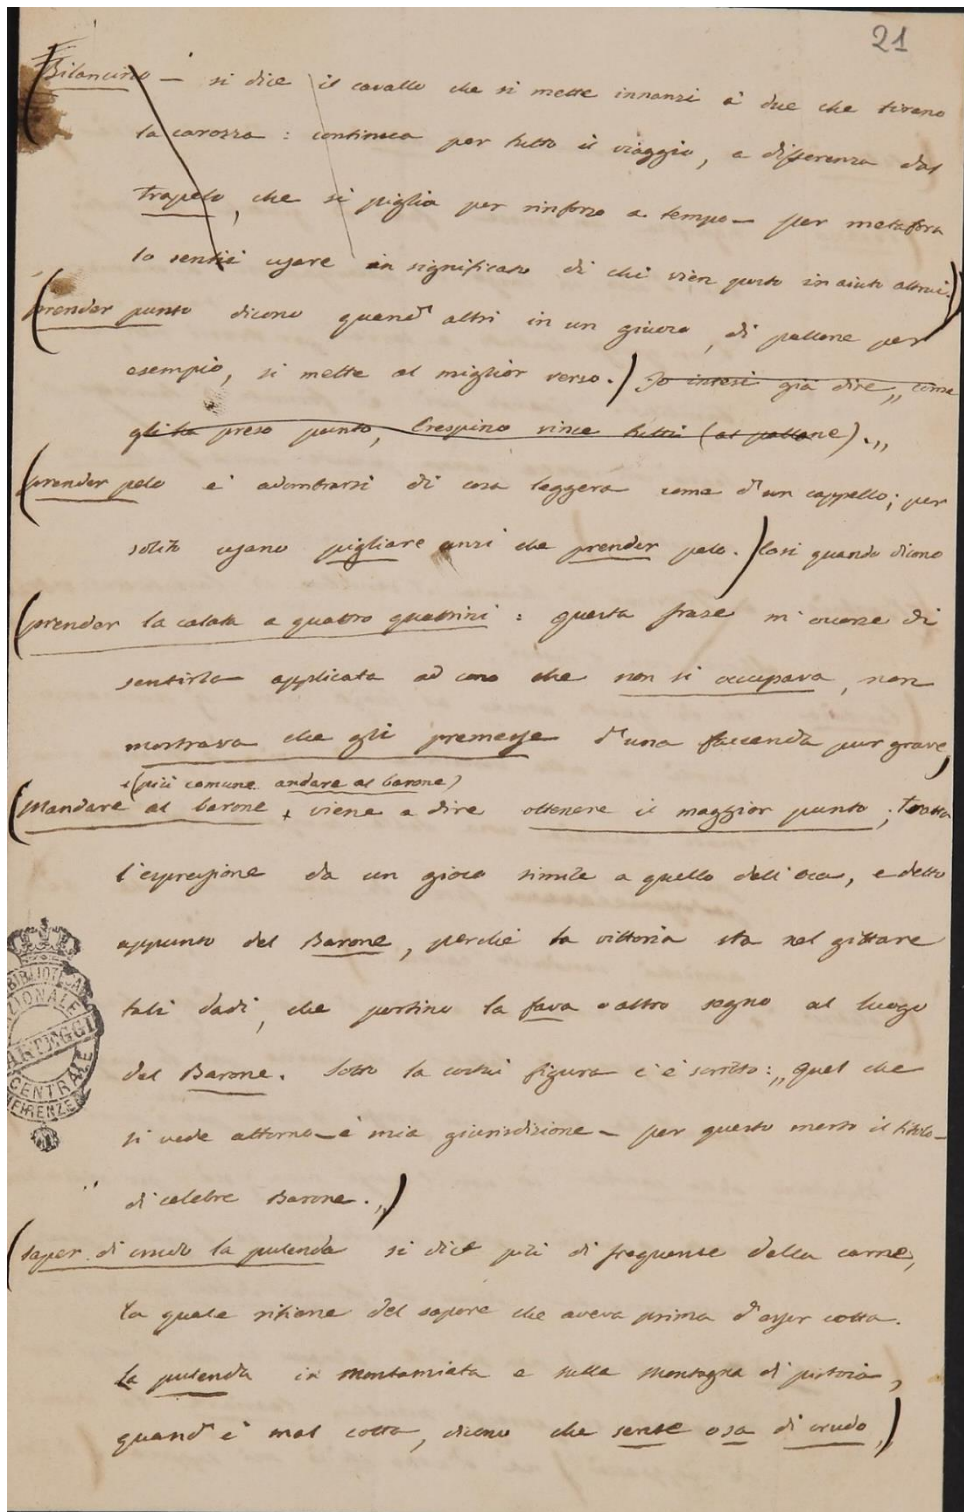 21
(Bilancino — si dice il cavallo che si mette innanzi a' due che tirano
la carozza : continua per tutto il viaggio, a differenza del
trapelo, che si piglia per rinforzo a tempo — per metafora
lo sentii usare in significato di chi vien posto in aiuto altrui.)
(prender punto dicono quand' altri in un giuoco, di pallone per
esempio, si mette al miglior verso.) Io intesi già dire „ come
gli ha preso punto, Crespino vince tutti (al pallone).„
(prender pelo è adombrarsi di cosa leggera come d'un cappello; per
solito usano pigliare anzi che prender pelo.) Così quando dicono
(prender la calata a quattro quattrini : questa frase m'occorse di
sentirla applicata ad uno che non si occupava, non
mostrava che gli premesse d'una faccenda pur grave)
+ (più comune andare al barone)
(Mandare al barone + viene a dire ottenere il maggior punto; tratta
l'espressione da un gioco simile a quello dell'oca, e detto
appunto del Barone, perchè la vittoria sta nel gittare
tali dadi, che portino la fava o altro segno al luogo
del Barone. Sotto la costui figura c'è scritto: „ Quel che
si vede attorno — è mia giurisdizione — per questo merto il titolo —
di celebre Barone.„)
(saper di crudo la pulenda si dice più di frequente della carne,
la quale ritiene del sapore che aveva prima d'esser cotta.
La pulenda in Montamiata e sulla Montagna di pistoia,
quand' è mal cotta, dicono che sente o sa di crudo.)
BIBLIOTECA
NAZIONALE
CARTEGGI
CENTRALE
FIRENZE